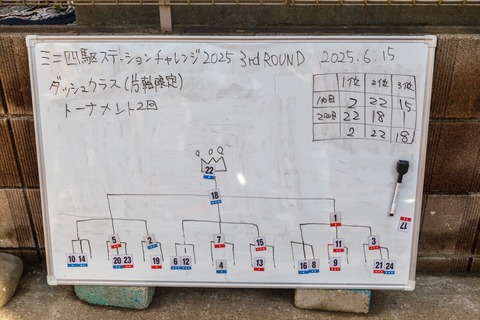 ミニ四駆ステーションチャレンジ2025 3rd ROUND 2025.6.15
ダッシュクラス(片軸限定)
トーナメント2回
1位 2位 3位
1回目 2 22 15
2回目 22 18 1
2 22 18
22
18
1
17
5 2 7 15 11 3
10 14 20 23 19 6 12 4 13 16 8 9 21 24